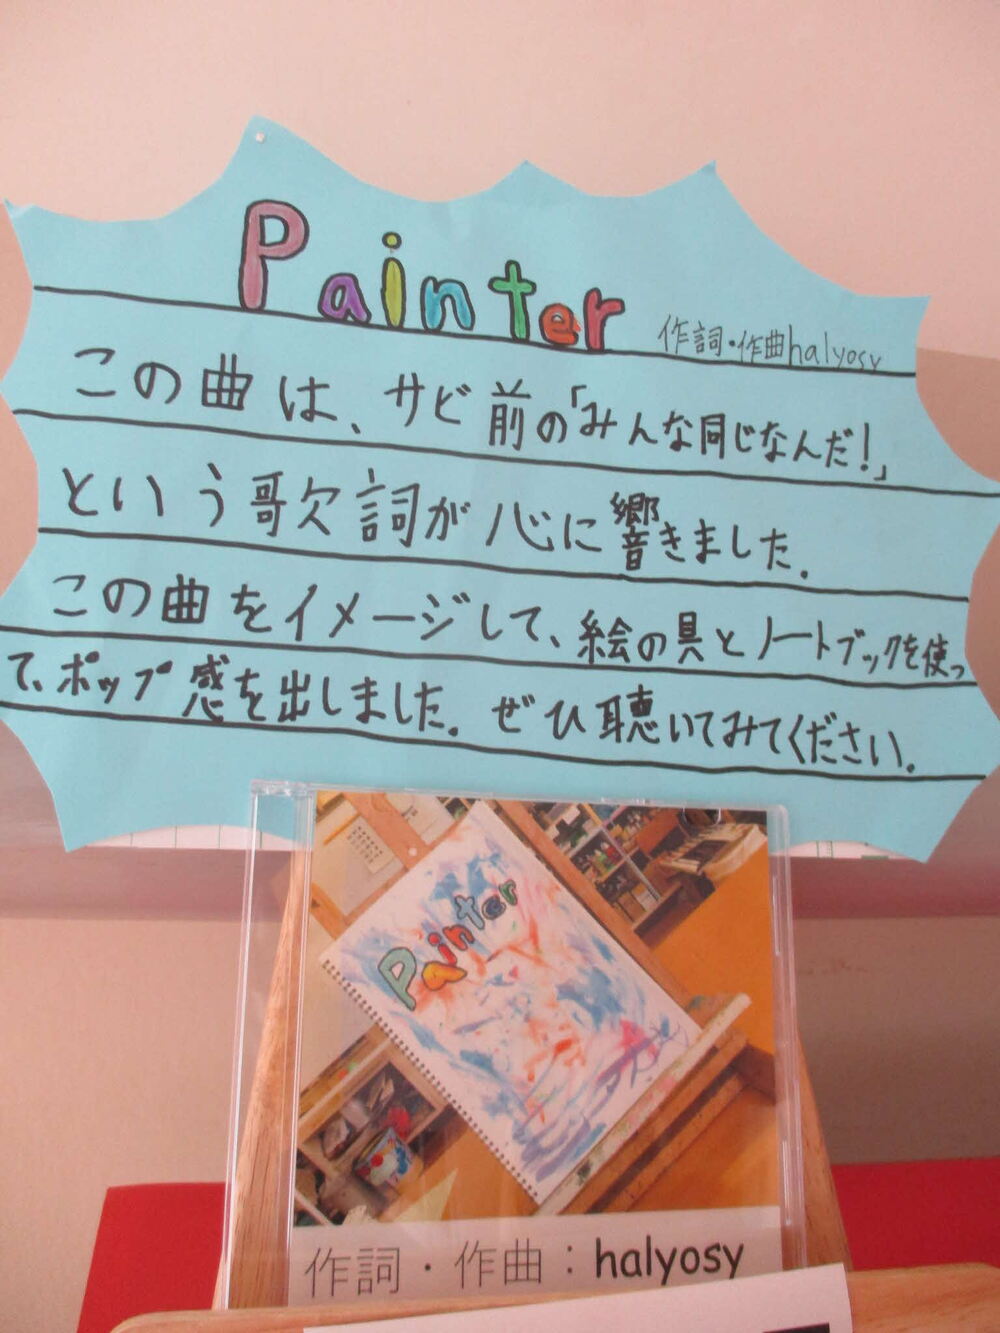 Painter
作詞・作曲halyosy
この曲は、サビ前の「みんな同じなんだ!」
という歌詞が心に響きました。
この曲をイメージして、絵の具とノートブックを使っ
て、ポップ感を出しました。ぜひ聴いてみてください。
Painter
作詞・作曲：halyosy